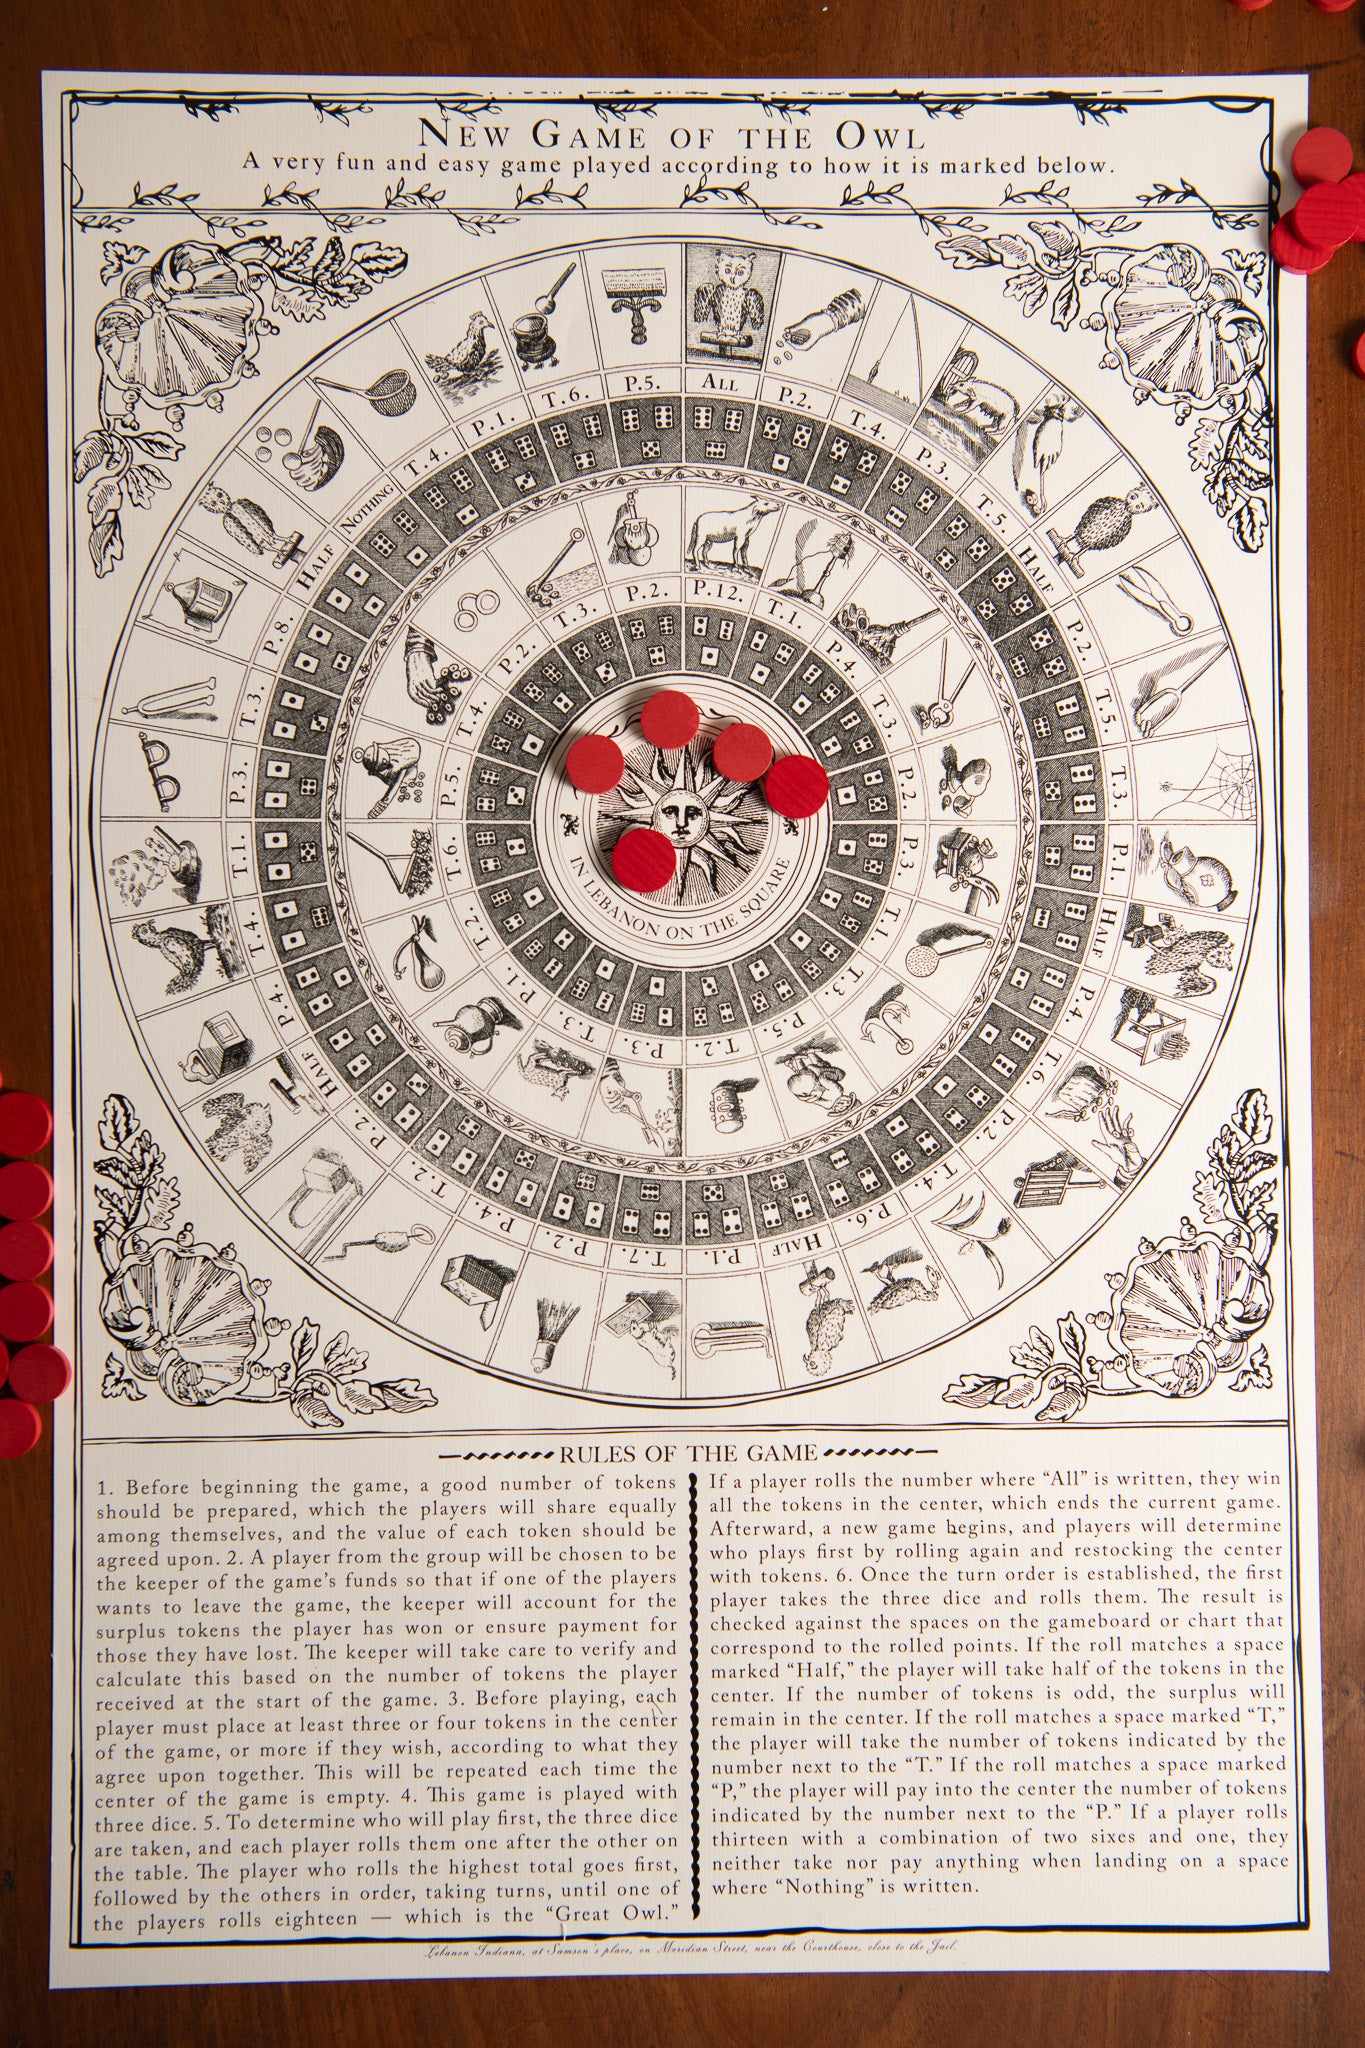 NEW GAME OF THE OWL
A very fun and easy game played according to how it is marked below.
ALL
P.2.
T.4.
P.3.
T.5.
HALF
P.2.
T.5.
T.3.
P.1.
HALF
P.4.
T.6.
P.2.
T.4.
P.6.
HALF
P.1.
T.7.
P.2.
P.4.
T.2.
P.2.
HALF
P.4.
T.4.
T.1.
P.3.
T.3.
P.8.
HALF
NOTHING
T.4.
P.1.
T.6.
P.5.
P.12.
T.1.
P.4
T.3.
P.2.
P.3.
T.1.
T.3.
P.5.
T.2.
P.3.
T.3.
P.1.
T.2.
T.6.
P.5.
T.4.
P.2.
T.3.
P.2.
IN LEBANON ON THE SQUARE
RULES OF THE GAME
1. Before beginning the game, a good number of tokens
should be prepared, which the players will share equally
among themselves, and the value of each token should be
agreed upon. 2. A player from the group will be chosen to be
the keeper of the game's funds so that if one of the players
wants to leave the game, the keeper will account for the
surplus tokens the player has won or ensure payment for
those they have lost. The keeper will take care to verify and
calculate this based on the number of tokens the player
received at the start of the game. 3. Before playing, each
player must place at least three or four tokens in the center
of the game, or more if they wish, according to what they
agree upon together. This will be repeated each time the
center of the game is empty. 4. This game is played with
three dice. 5. To determine who will play first, the three dice
are taken, and each player rolls them one after the other on
the table. The player who rolls the highest total goes first,
followed by the others in order, taking turns, until one of
the players rolls eighteen — which is the “Great Owl.”
If a player rolls the number where “All” is written, they win
all the tokens in the center, which ends the current game.
Afterward, a new game begins, and players will determine
who plays first by rolling again and restocking the center
with tokens. 6. Once the turn order is established, the first
player takes the three dice and rolls them. The result is
checked against the spaces on the gameboard or chart that
correspond to the rolled points. If the roll matches a space
marked “Half,” the player will take half of the tokens in the
center. If the number of tokens is odd, the surplus will
remain in the center. If the roll matches a space marked “T,”
the player will take the number of tokens indicated by the
number next to the “T.” If the roll matches a space marked
“P,” the player will pay into the center the number of tokens
indicated by the number next to the “P.” If a player rolls
thirteen with a combination of two sixes and one, they
neither take nor pay anything when landing on a space
where “Nothing” is written.
Lebanon Indiana, at Samson's place, on Meridian Street, near the Courthouse, close to the Jail.